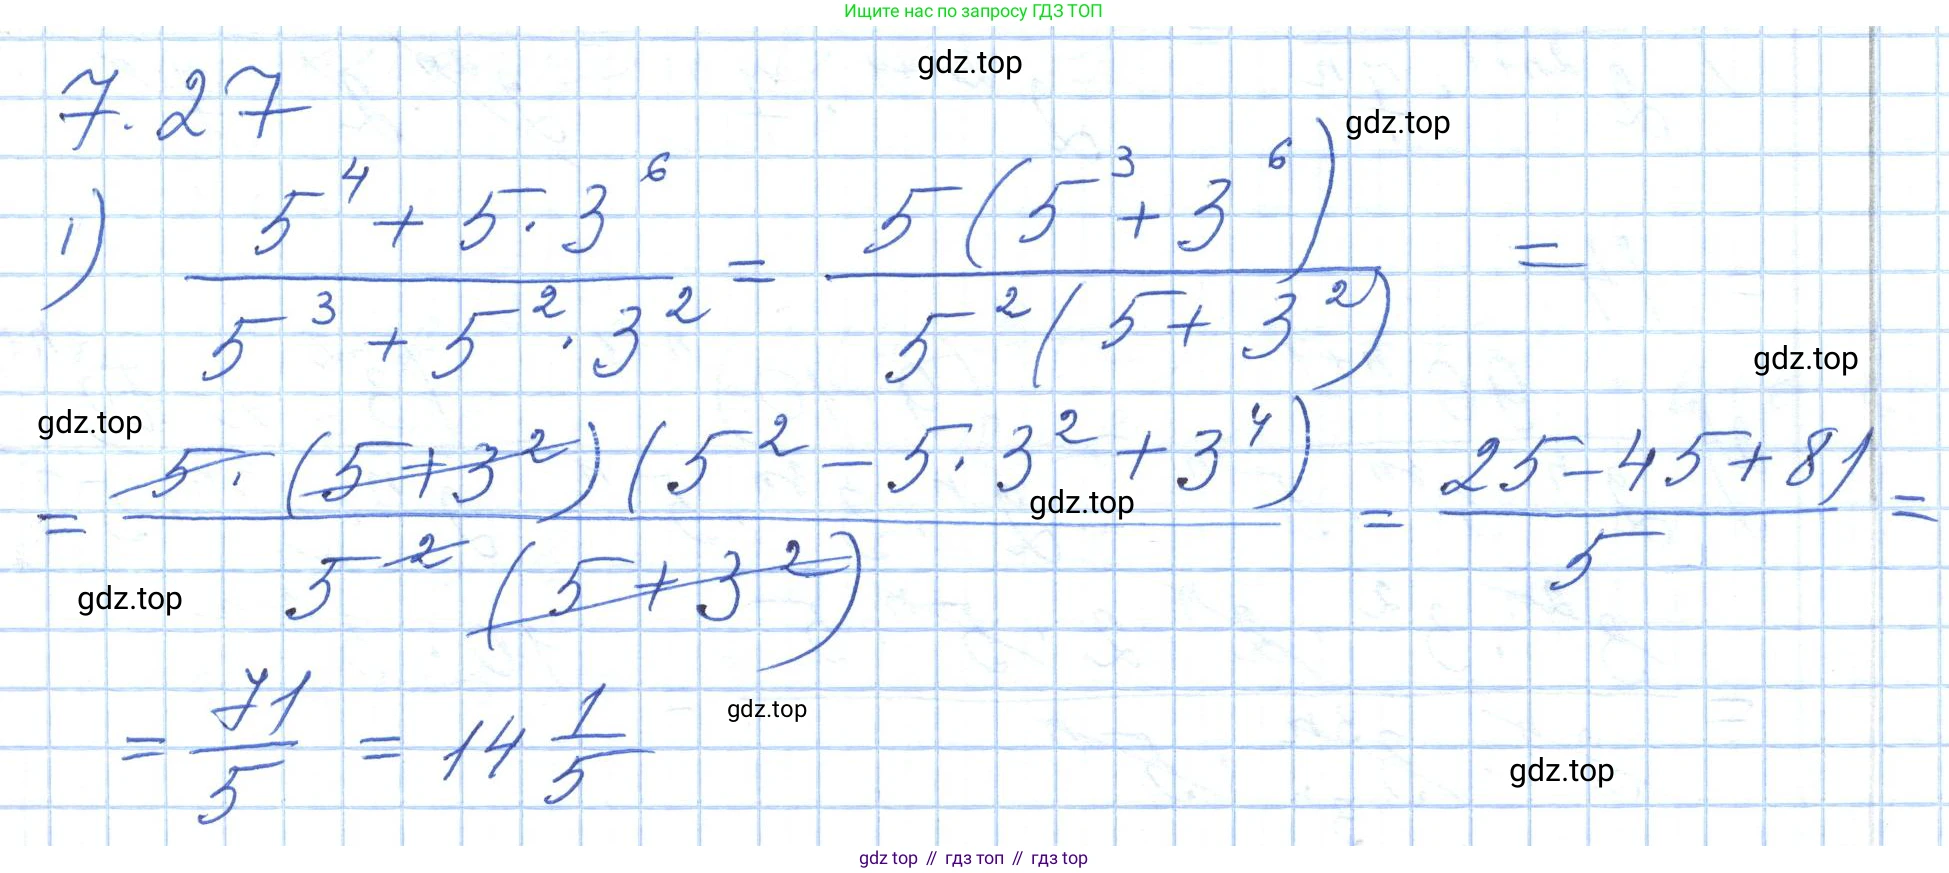 Ищите нас по запросу ГДЗ ТОП
gdz.top
7.27
gdz.top
1) (5⁴ + 5·3⁶)/(5³ + 5²·3²) = 5(5³ + 3⁶)/5²(5 + 3²) =
gdz.top
gdz.top
= 5·(5+3²)(5² − 5·3² + 3⁴)/5²(5 + 3²) = (25 − 45 + 81)/5 =
gdz.top
gdz.top
= 71/5 = 14 1/5
gdz.top
gdz.top
gdz top // гдз топ // гдз top